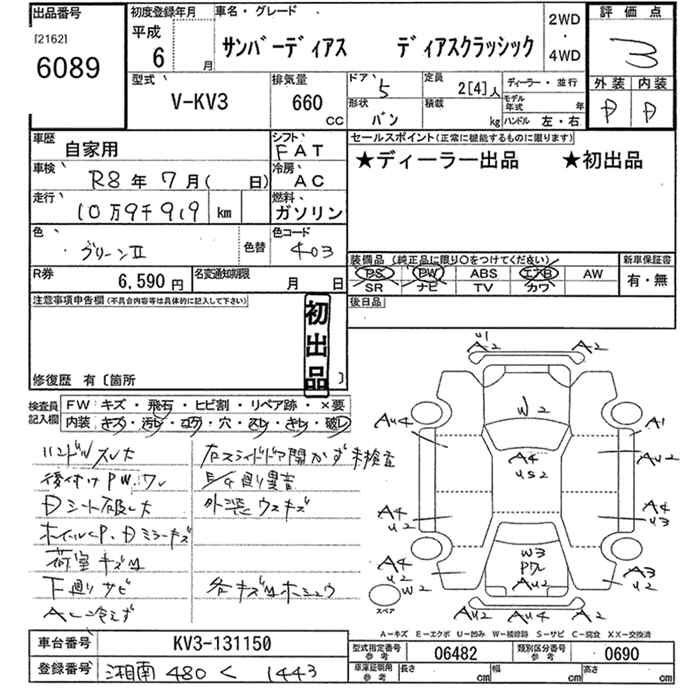 出品番号
[2162]
6089
初度登録年月
平成
6 月
車名・グレード
サンバーディアス ディアスクラッシック
2WD
・
4WD
評価点
3
型式
V-KV3
排気量
660 CC
ドア 5
形状 バン
定員 2[4]人
積載 kg
ディーラー・並行
モデル年式 年
ハンドル 左・右
外装 内装
D D
車歴 自家用
シフト FAT
車検 R8年7月( 日)
冷房 AC
走行 10万9千919 km
燃料 ガソリン
色 グリーンII
色替
色コード 403
セールスポイント(正常に機能するものに限ります)
★ディーラー出品 ★初出品
装備品(純正品に限り○をつけてください)
PS PW ABS エアB AW
SR ナビ TV カワ
新車保証書
有・無
R券 6,590円
名変通知期限 月 日
後日品
注意事項申告欄(不具合内容等は具体的に記入して下さい)
初出品
修復歴 有〔箇所 〕
検査員記入欄
FW:キズ・飛石・ヒビ割・リペア跡・×要
内装:キズ・汚レ・コゲ・穴・スレ・キレ・破レ
ハンドルスレ大
後付けPW.ワレ
Dシート破レ大
ホイールCP、Dミラーキズ
荷室キズM
下廻りサビ
ACー冷えず
右スライドドア開かず未検査
外装ウスキズ
各キズMホシュウ
U1
A2
A2
W2
AU4
A1
A4
US2
AU2
A4
U2
A4
U3
W3
Pワレ
AU2
A4
U2
W2
A3
U2
スペア
AU2
AU4
A2
A-キズ E-エクボ U-凹み W-補修跡 S-サビ C-腐食 XX-交換済
車台番号 KV3-131150
登録番号 湘南 480 く 1443
型式指定番号 参考 06482
類別区分番号 参考 0690
車庫証明用 参考
長さ cm
幅 cm
高さ cm